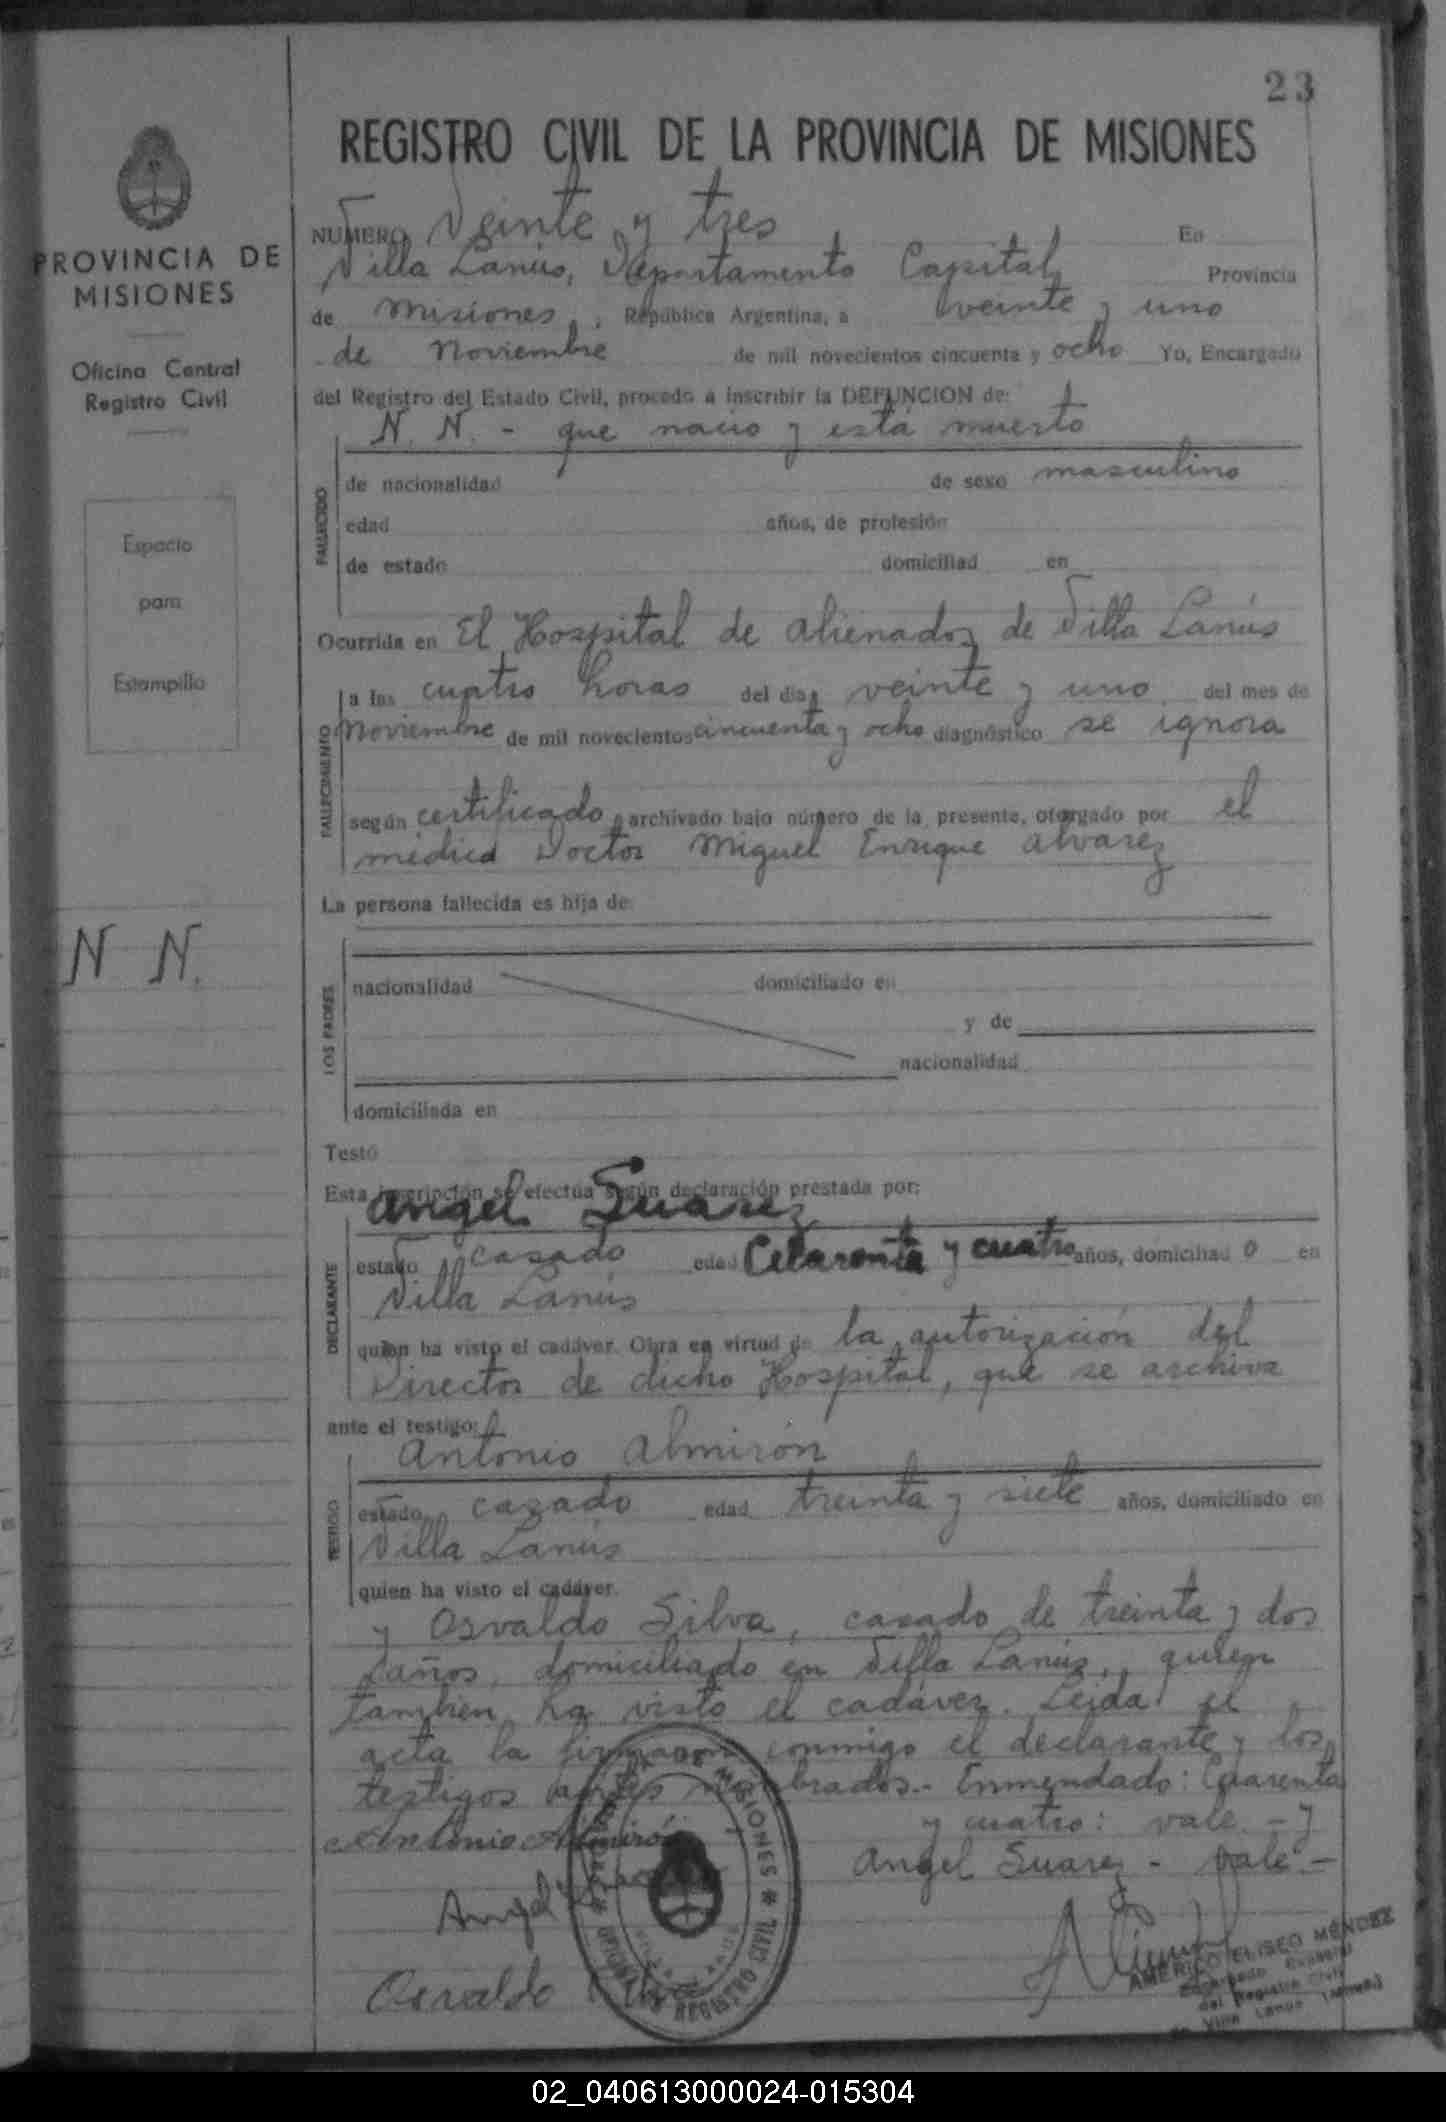 23
REGISTRO CIVIL DE LA PROVINCIA DE MISIONES
PROVINCIA DE
MISIONES
Oficina Central
Registro Civil
Espacio
para
Estampilla
N N.
NUMERO Veinte y tres En
Villa Lanús, Departamento Capital Provincia
de Misiones, República Argentina, a veinte y uno
de Noviembre de mil novecientos cincuenta y ocho Yo, Encargado
del Registro del Estado Civil, procedo a inscribir la DEFUNCION de:
N. N. - que nació y está muerto
FALLECIDO
de nacionalidad de sexo masculino
edad años, de profesión
de estado domiciliad en
Ocurrida en El Hospital de alienados de Villa Lanús
FALLECIMIENTO
a las cuatro horas del día veinte y uno del mes de
Noviembre de mil novecientos cincuenta y ocho diagnóstico se ignora
según certificado archivado bajo número de la presente, otorgado por el
médico Doctor Miguel Enrique Alvarez
La persona fallecida es hija de:
LOS PADRES
nacionalidad domiciliado en
y de
nacionalidad
domiciliada en
Testó
Esta inscripción se efectúa según declaración prestada por:
Angel Suarez
DECLARANTE
estado casado edad Cuarenta y cuatro años, domiciliad o en
Villa Lanús
quien ha visto el cadáver. Obra en virtud de la autorización del
Director de dicho Hospital, que se archiva
ante el testigo:
Antonio Almirón
TESTIGO
estado casado edad treinta y siete años, domiciliado en
Villa Lanús
quien ha visto el cadáver.
y Osvaldo Silva, casado de treinta y dos
años, domiciliado en Villa Lanús, quien
tambien ha visto el cadáver. Leida el
acta la firmaron conmigo el declarante y los
testigos antes nombrados.- Enmendado: Cuarenta
y cuatro: vale. - y
Angel Suarez - vale -
Antonio Almirón
Angel Suarez
Osvaldo
MISIONES * OFICINA REGISTRO CIVIL *
AMERICO ELISEO MÉNDEZ
Encargado
del Registro Civil
de Villa Lanus (Misiones)
02_040613000024-015304